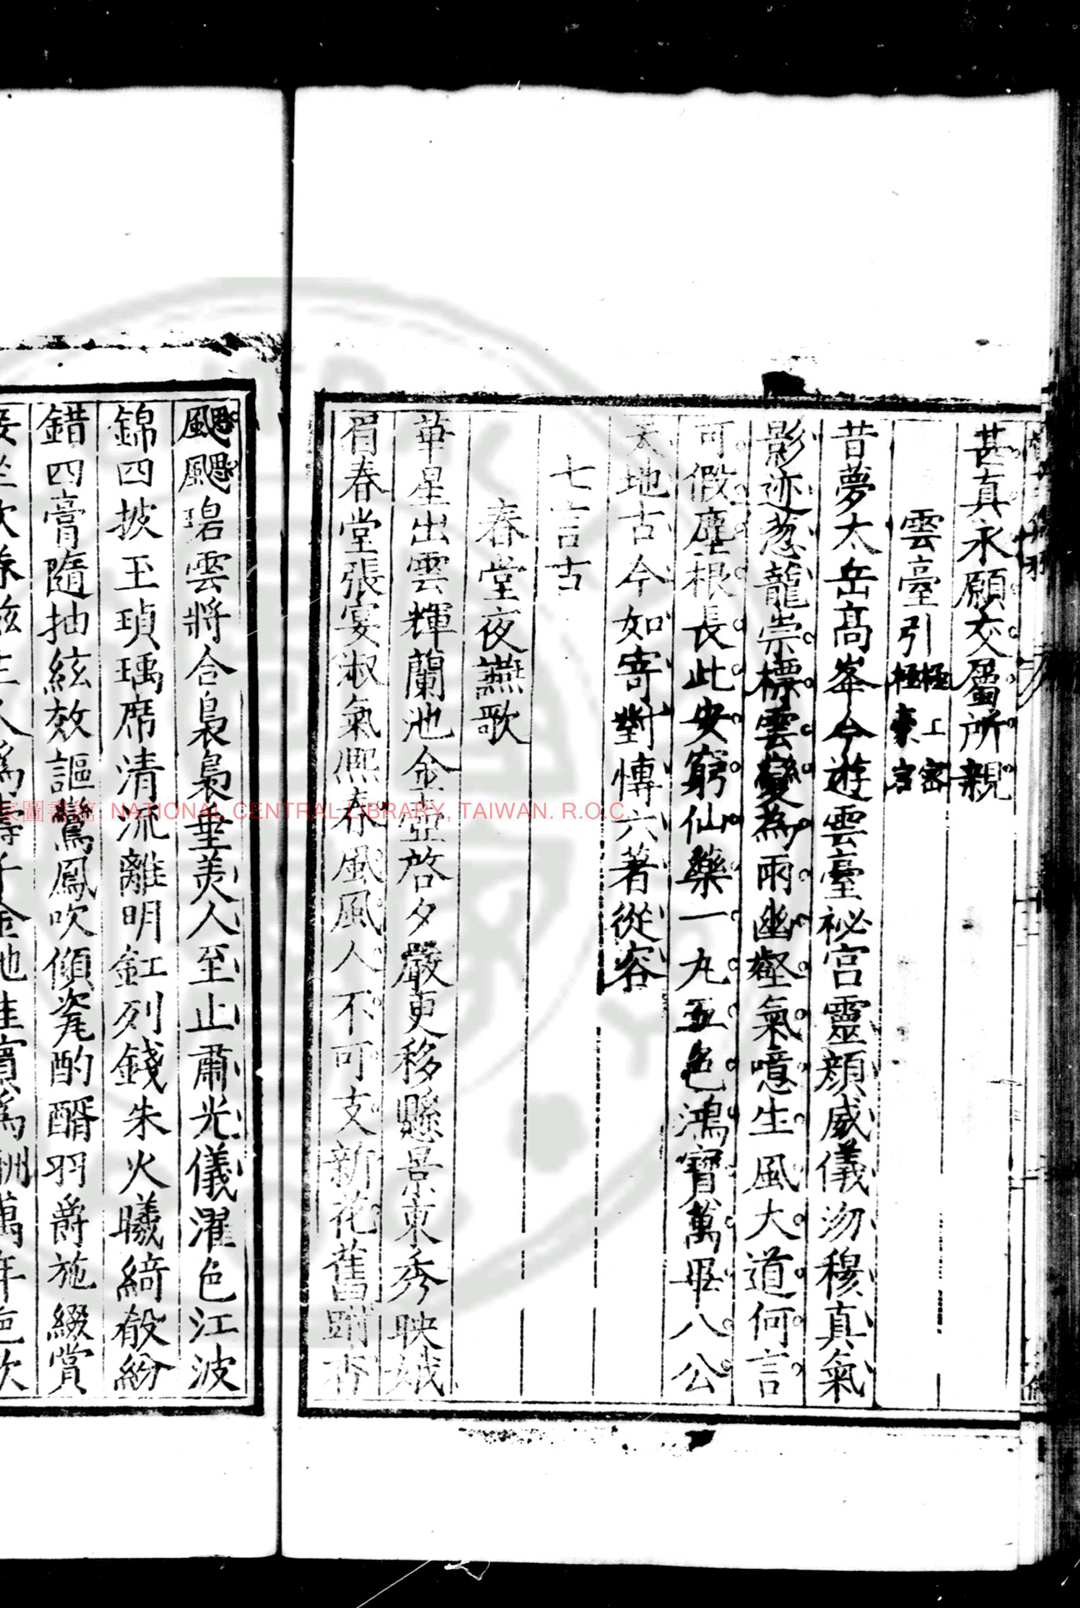 甚真永願交屬所親
雲臺引
昔夢太岳高峯今遊雲臺祕宫靈顔威儀沕穆真氣
影迹葱蘢崇標雲變為雨幽壑氣噫生風大道何言
可假塵根長此安窮仙藥一丸五色鴻寶萬畢八公
天地古今如寄對慱六著從容
七言古
春堂夜讌歌
華星出雲輝蘭池金壺啓夕嚴更移懸景東秀映娥
眉春堂張宴淑氣熙春風風人不可支新花舊
颸颸碧雲將合裊裊垂美人至止肅光儀濯色江波
錦四披玉瑱瑀席清流離明缸列錢朱火曦綺殽紛
錯四膏隨抽絃效謳鸞鳳吹傾瓷酌醑羽爵施綴賞
國家圖書館 NATIONAL CENTRAL LIBRARY, TAIWAN. R.O.C.